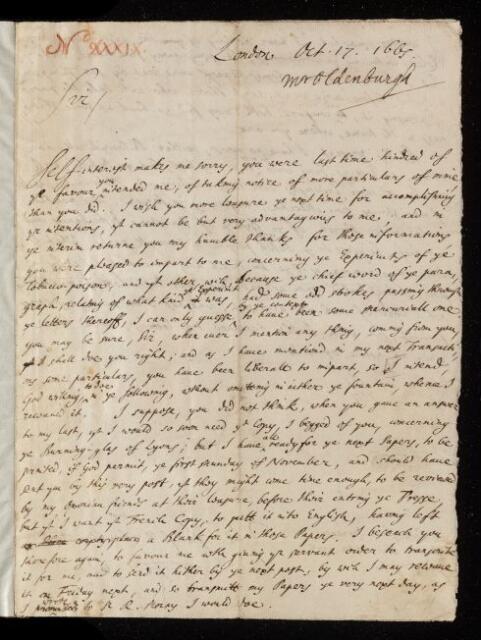 No XXXIX.
London Oct. 17. 1665.
Mr Oldenburgh
Sir/
Self-interest makes me sorry, you were last time hindred of
ye favour you intended me, of taking notice of more particulars of mine
than you did. I wish you more leasure ye next time for accomplishing
yr intentions, yt cannot be but very advantagious to me; and in
ye interim returne you my humble thanks for those informations
you were pleased to impart to me, concerning ye Experiments of ye
Tobacco-poison, and yt other, wch because ye chief word of ye para-
graph, relating of what kind ye Experiment was, had some odd strokes passing through
ye letters thereof, I can only guesse by ye context to have been some mercuriall one
you may be sure, Sir, when ever I mention any thing, coming from you,
yt I shall doe you right; and as I have mentiond in my next Transacti-
ons some particulars, you have been liberall to impart, so I intend,
God willing, to doe in ye following, without omitting neither ye fountain, whence I
receaued it. I suppose, you did not think, when you gaue an answer
to my last, yt I would so soon need yt Copy, I begged of you, concerning
ye Burning-glas of Lyons; but I have all ready for ye next Papers, to be
printed, if God permit, ye first Munday of November, and should have
sent you by this very post, yt they might come time enough, to be reviewed
by my Oxonian friends at their leasure, before their entring ye Presse,
but yt I want yt French Copy, to putt it into English, having left
a blank for it in those Papers. I beseech you
therefore again, to favour me with giuing yr servant order to transcribe
it for me, and to send it hither by ye next post, by wch I may receaue
it on Friday next, and so transmitt my Papers ye very next day, as
I wrote to Sr R. Moray I would doe.